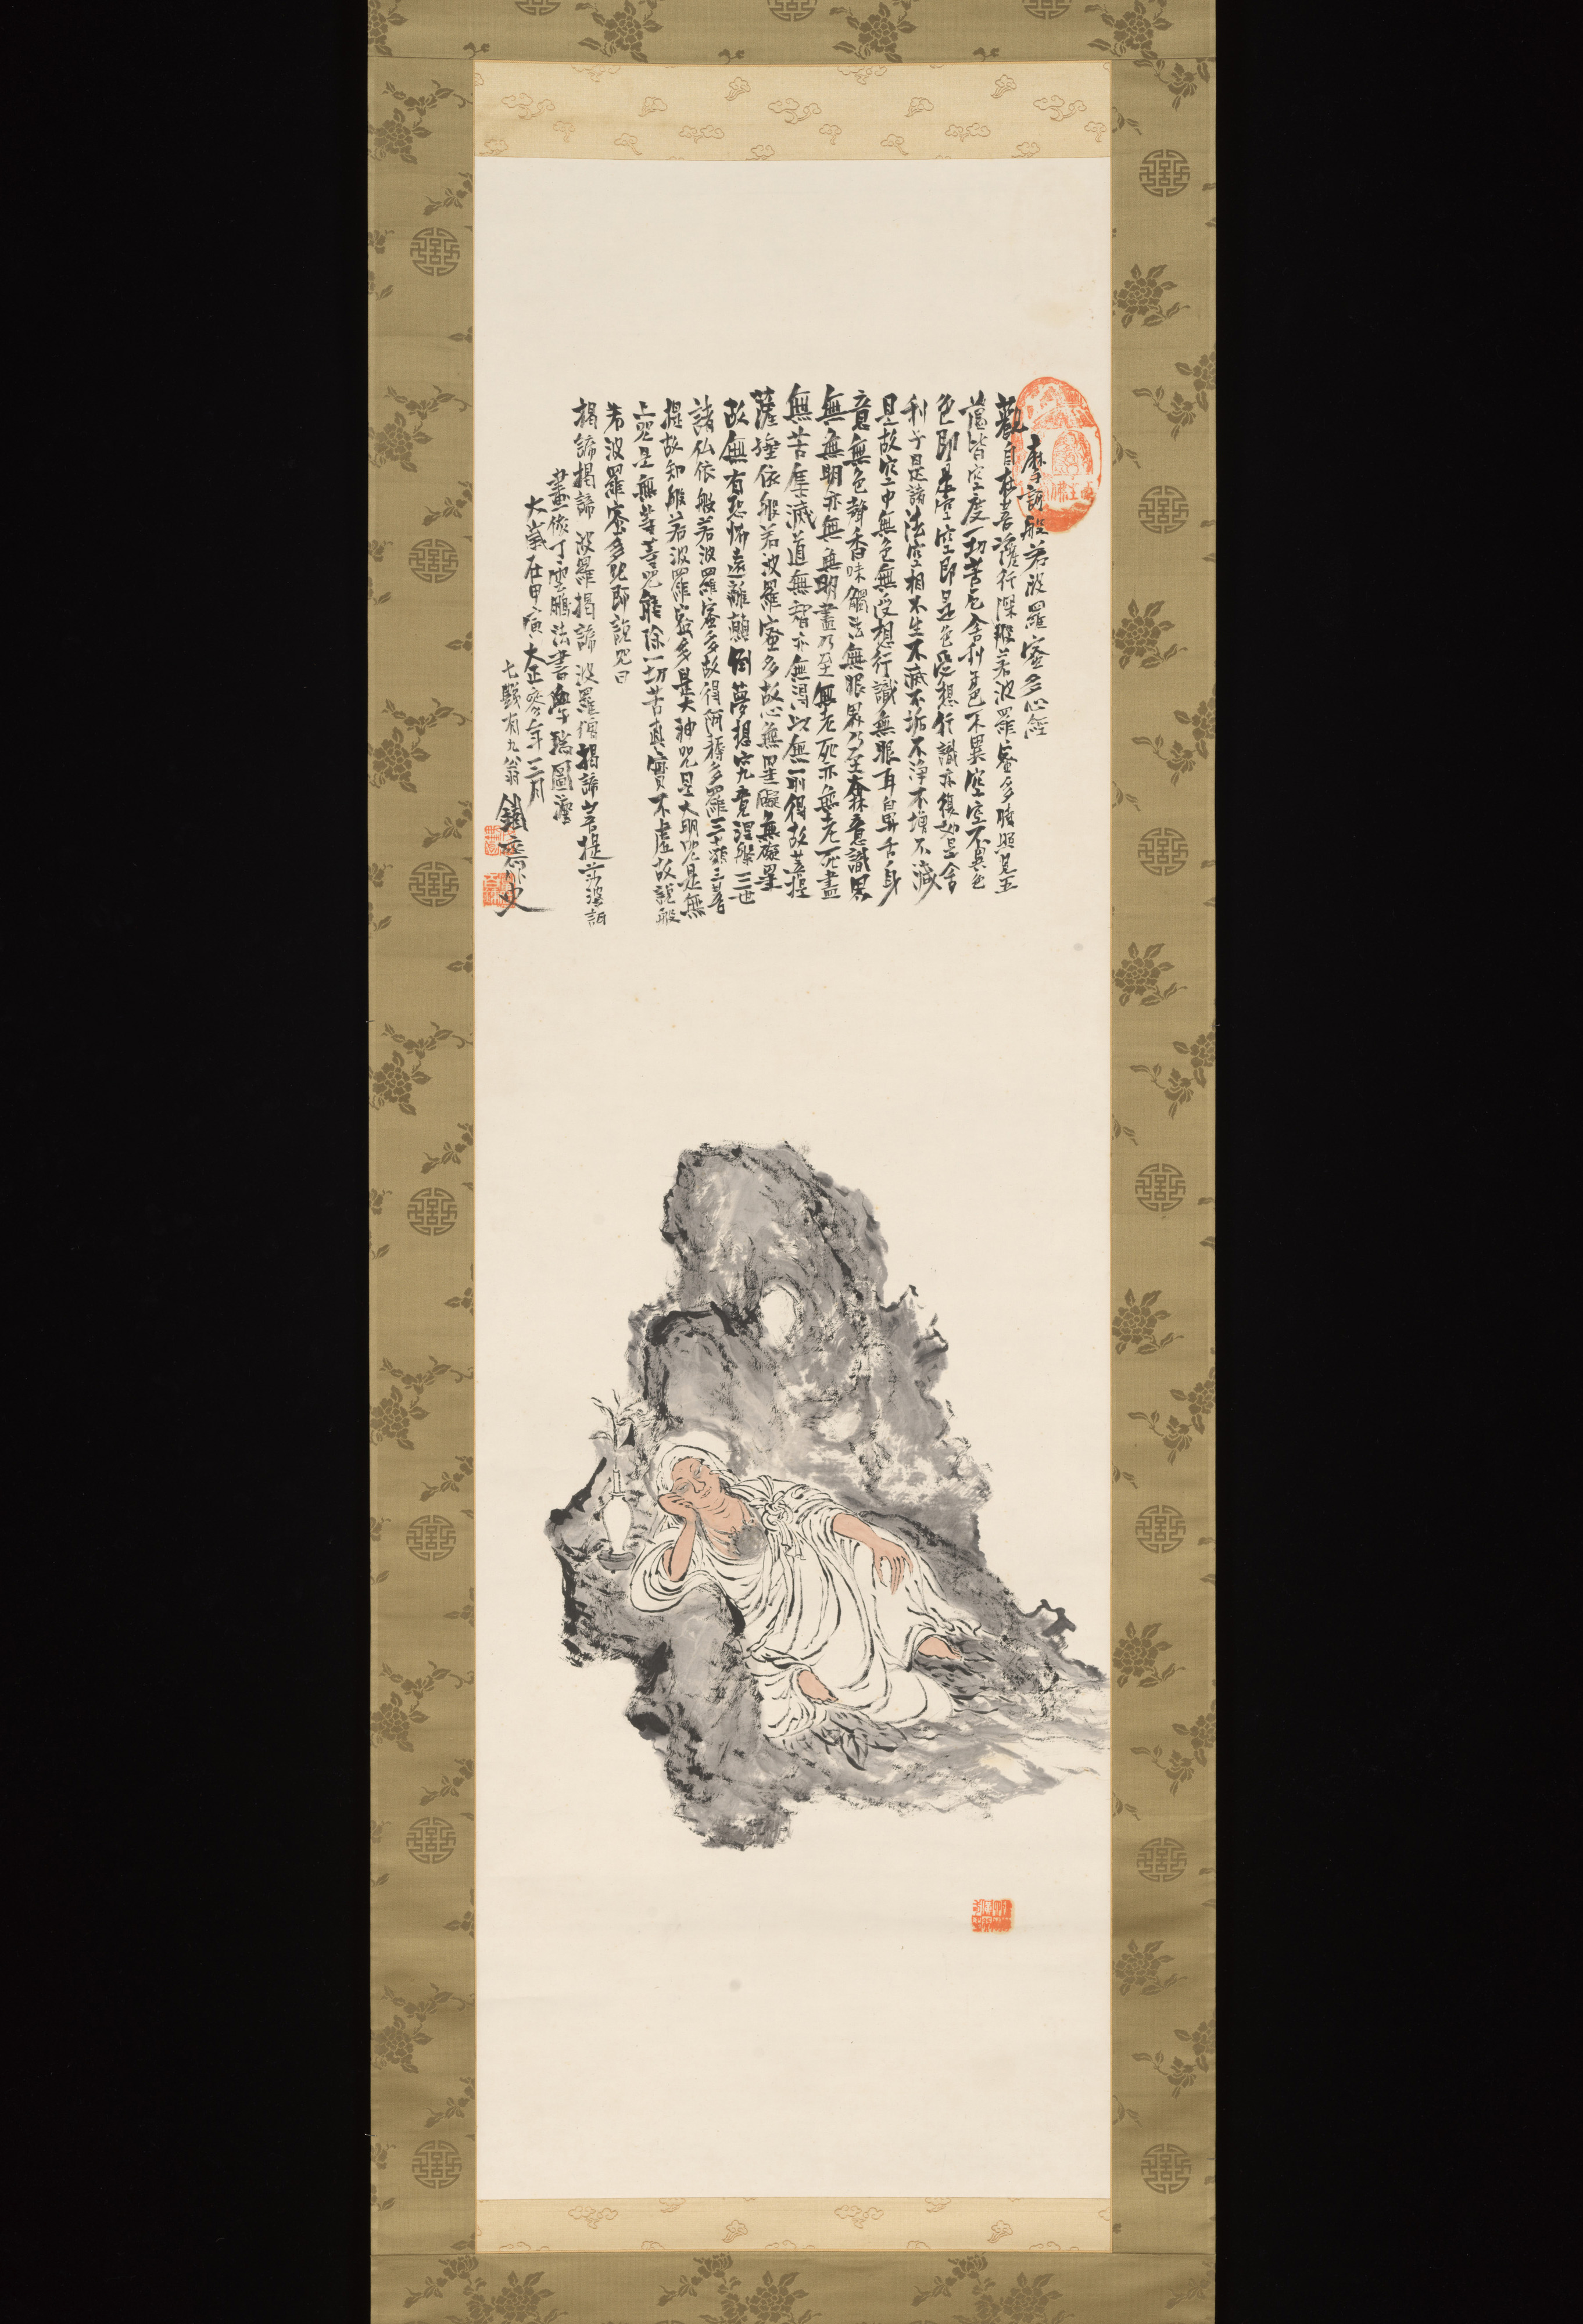 摩訶般若波羅蜜多心經
觀自在菩薩行深般若波羅蜜多時照見五
蘊皆空度一切苦厄舍利子色不異空空不異色
色即是空空即是色受想行識亦復如是舍
利子是諸法空相不生不滅不垢不淨不增不減
是故空中無色無受想行識無眼耳鼻舌身
意無色聲香味觸法無眼界乃至無意識界
無無明亦無無明盡乃至無老死亦無老死盡
無苦集滅道無智亦無得以無所得故菩提
薩埵依般若波羅蜜多故心無罣礙無礙罣
故無有恐怖遠離顛倒夢想究竟涅槃三世
諸仏依般若波羅蜜多故得阿耨多羅三藐三菩
提故知般若波羅蜜多是大神咒是大明咒是無
上咒是無等等咒能除一切苦真實不虛故說般
若波羅蜜多咒即說咒曰
揭諦揭諦 波羅揭諦 波羅僧揭諦菩提莎婆訶
畫倣丁雲鵬法書學瑞圖
大歲在甲寅大正參年三月
七有九翁 鐵齋外史